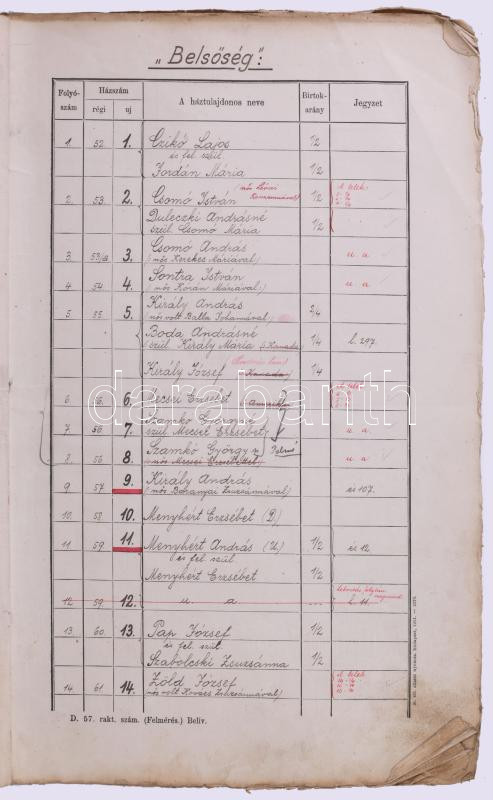 „Belsőség":
Folyó-szám Házszám régi uj A háztulajdonos neve Birtok-arány Jegyzet
1. 52. 1. Czikó Lajos 1/2
és fel. szül.
Jordán Mária 1/2
2. 53. 2. Csomó István 1/2 A telek
Duleczki Andrásné 1/2
szül. Csomó Mária
3. 53/a 3. Csomó András u. a.
(nős Kerekes Máriával)
4. 54 4. Sontra István u. a.
(nős Korán Máriával)
5. 55. 5. Király András 2/4
(nős volt Balla Johámával)
Boda Andrásné 1/4 l. 297.
(szül. Király Mária) Kanada
Király József Kanada 1/4
6. 6. Mecsei Erzsébet
7. 56. 7. Szamkó Györgyné u. a.
szül. Mecsei Erzsébet
8. 56 8. Szamkó György u. a.
(nős Mecsei Erzsébettel)
9. 57. 9. Király András és 107.
(nős Baranyai Zsuzsánnával)
10. 58. 10. Menyhért Erzsébet
11. 59. 11. Menyhért András (U.) 1/2 és 12
és fel. szül.
Menyhért Erzsébet 1/2
12. 59. 12. u. a. l. 11.
13. 60. 13. Pap József 1/2
és fel. szül.
Szabolcski Zsuzsánna 1/2
14. 61. 14. Zöld József A telek
(nős volt Kovács Zsuzsánnával)
D. 57. rakt. szám. (Felmérés.) Beliv.
darabanth